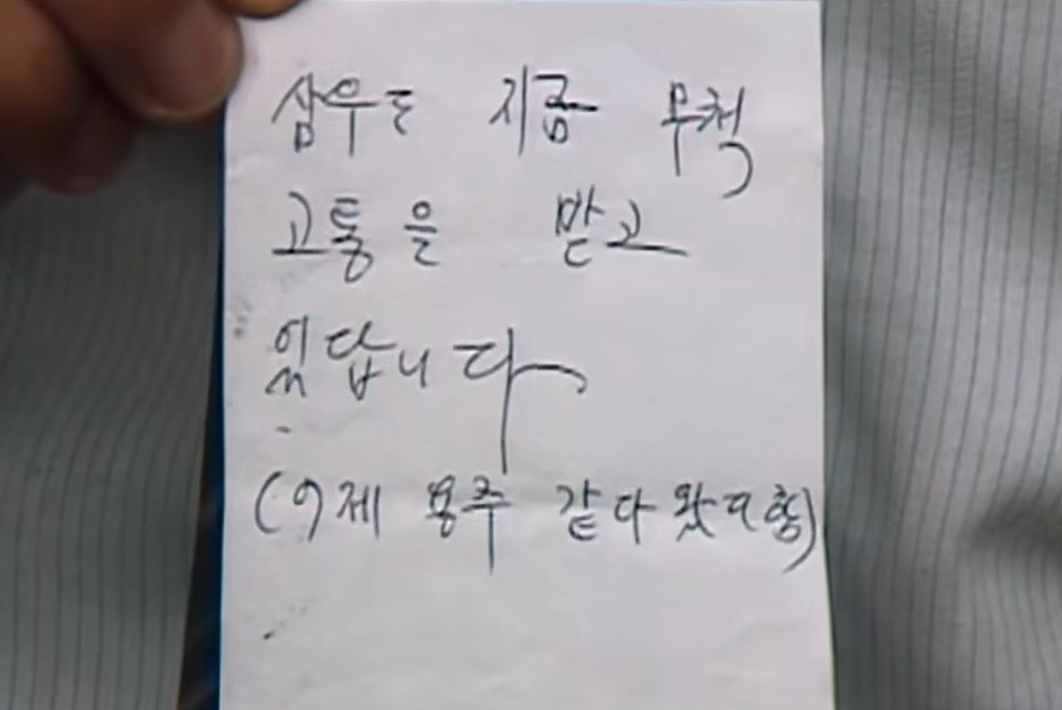 삼우도 지금 무척
고통을 받고
있답니다
(어제 광주 같다왔다함)